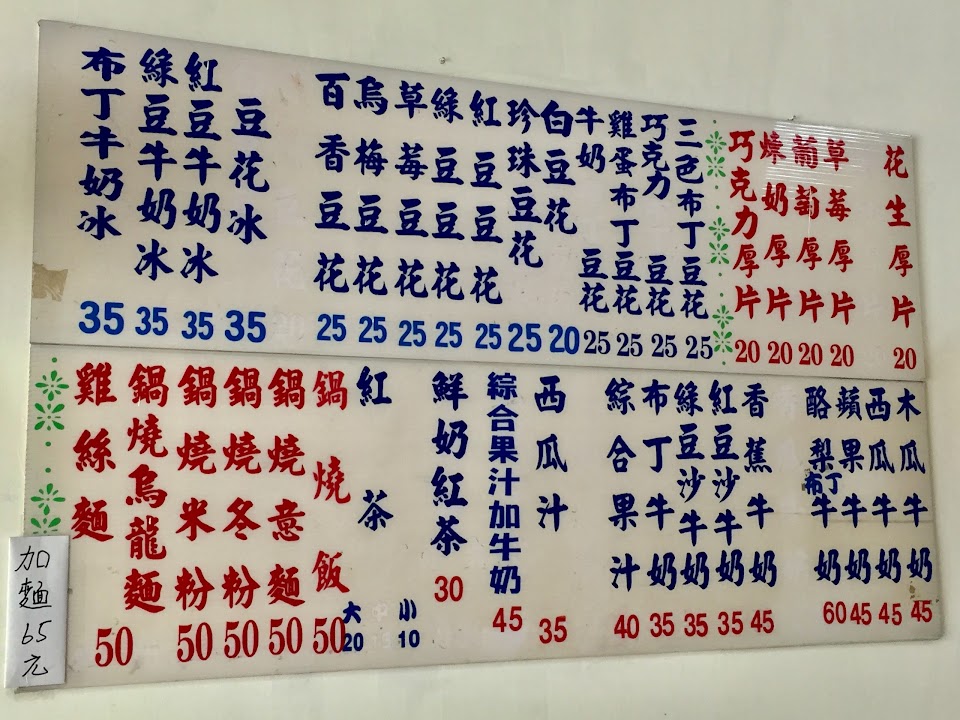 花生厚片 20
草莓厚片 20
葡萄厚片 20
煉奶厚片 20
巧克力厚片 20
三色布丁豆花 25
巧克力豆花 25
雞蛋布丁豆花 25
牛奶豆花 25
白豆花 20
珍珠豆花 25
紅豆豆花 25
綠豆豆花 25
草莓豆花 25
烏梅豆花 25
百香豆花 25
豆花冰 35
紅豆牛奶冰 35
綠豆牛奶冰 35
布丁牛奶冰 35
木瓜牛奶 45
西瓜牛奶 45
蘋果牛奶 45
酪梨布丁牛奶 60
香蕉牛奶 45
紅豆沙牛奶 35
綠豆沙牛奶 35
布丁牛奶 35
綜合果汁 40
西瓜汁 35
綜合果汁加牛奶 45
鮮奶紅茶 30
紅茶 小10 大20
鍋燒飯 50
鍋燒意麵 50
鍋燒冬粉 50
鍋燒米粉 50
鍋燒烏龍麵
雞絲麵 50
加麵65元